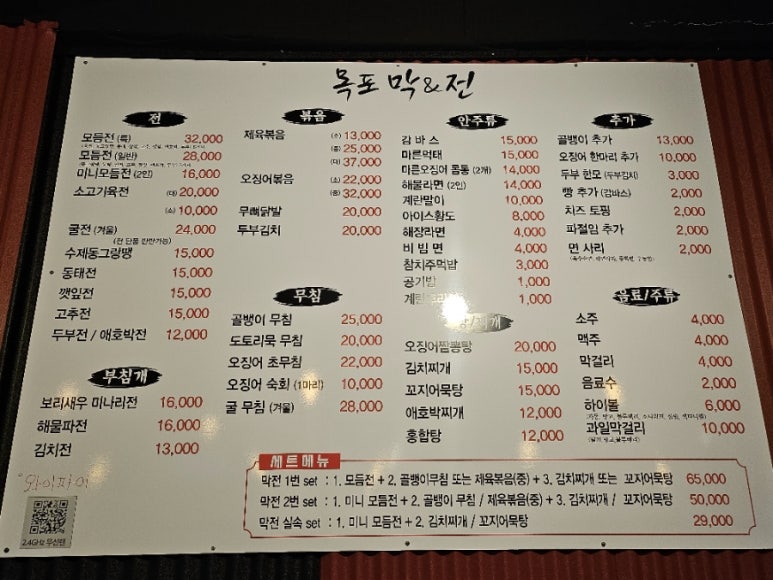 목포 막&전
전
모듬전 (특) 32,000
모듬전 (일반) 28,000
미니모듬전 (2인) 16,000
소고기육전 (대) 20,000
(소) 10,000
굴전 (겨울) 24,000
(전 단품 반반가능)
수제동그랑땡 15,000
동태전 15,000
깻잎전 15,000
고추전 15,000
두부전 / 애호박전 12,000
부침개
보리새우 미나리전 16,000
해물파전 16,000
김치전 13,000
와이파이
2.4GHz 무선랜
볶음
제육볶음 (소) 13,000
(중) 25,000
(대) 37,000
오징어볶음 (소) 22,000
(중) 32,000
무뼈닭발 20,000
두부김치 20,000
무침
골뱅이 무침 25,000
도토리묵 무침 20,000
오징어 초무침 22,000
오징어 숙회 (1마리) 10,000
굴 무침 (겨울) 28,000
안주류
감바스 15,000
마른먹태 15,000
마른오징어 몸통 (2개) 14,000
해물라면 (2인) 14,000
계란말이 10,000
아이스황도 8,000
해장라면 4,000
비빔면 4,000
참치주먹밥 3,000
공기밥 1,000
계란 1,000
오징어짬뽕탕 20,000
김치찌개 15,000
꼬지어묵탕 15,000
애호박찌개 12,000
홍합탕 12,000
추가
골뱅이 추가 13,000
오징어 한마리 추가 10,000
두부 한모 (두부김치) 3,000
빵 추가 (감바스) 2,000
치즈 토핑 2,000
파절임 추가 2,000
면 사리 2,000
음료/주류
소주 4,000
맥주 4,000
막걸리 4,000
음료수 2,000
하이볼 6,000
과일막걸리 10,000
세트메뉴
막전 1번 set : 1. 모듬전 + 2. 골뱅이무침 또는 제육볶음(중) + 3. 김치찌개 또는 꼬지어묵탕 65,000
막전 2번 set : 1. 미니 모듬전 + 2. 골뱅이 무침 / 제육볶음(중) + 3. 김치찌개 / 꼬지어묵탕 50,000
막전 실속 set : 1. 미니 모듬전 + 2. 김치찌개 / 꼬지어묵탕 29,000